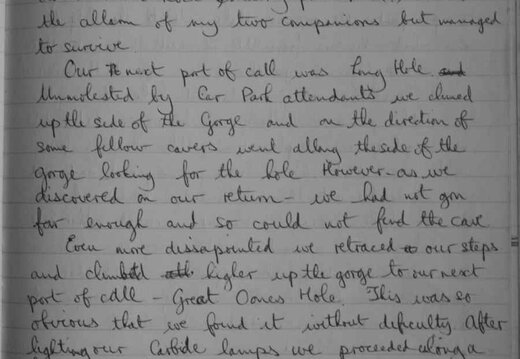 the alarm of my two companions but managed
to survive
Our next port of call was Long Hole
Unmolested by Car Park attendants we climed
up the side of the Gorge and on the direction of
some fellow cavers went along the side of the
gorge looking for the hole However - as we
discovered on our return - we had not gon
far enough and so could not find the cave
Even more dissapointed we retraced our steps
and climbed higher up the gorge to our next
port of call - Great Oones Hole. This was so
obvious that we found it without dificulty After
lighting our Carbide lamps we proceeded along a